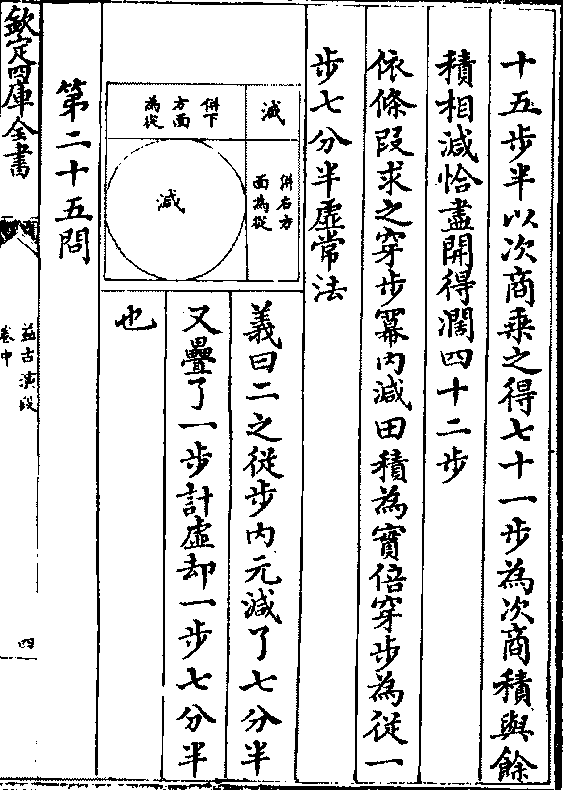 十五步半以次商乘之得七十一步為次商積與餘
積相減恰盡開得濶四十二步
依條段求之穿步冪內減田積為實倍穿步為從一
步七分半虛常法
減
併下
方面
為從
併右方
面為從
減
義曰二之從步內元減了七分半
又疊了一步計虛却一步七分半
也
第二十五問
欽定四庫全書
益古演段
卷中
四